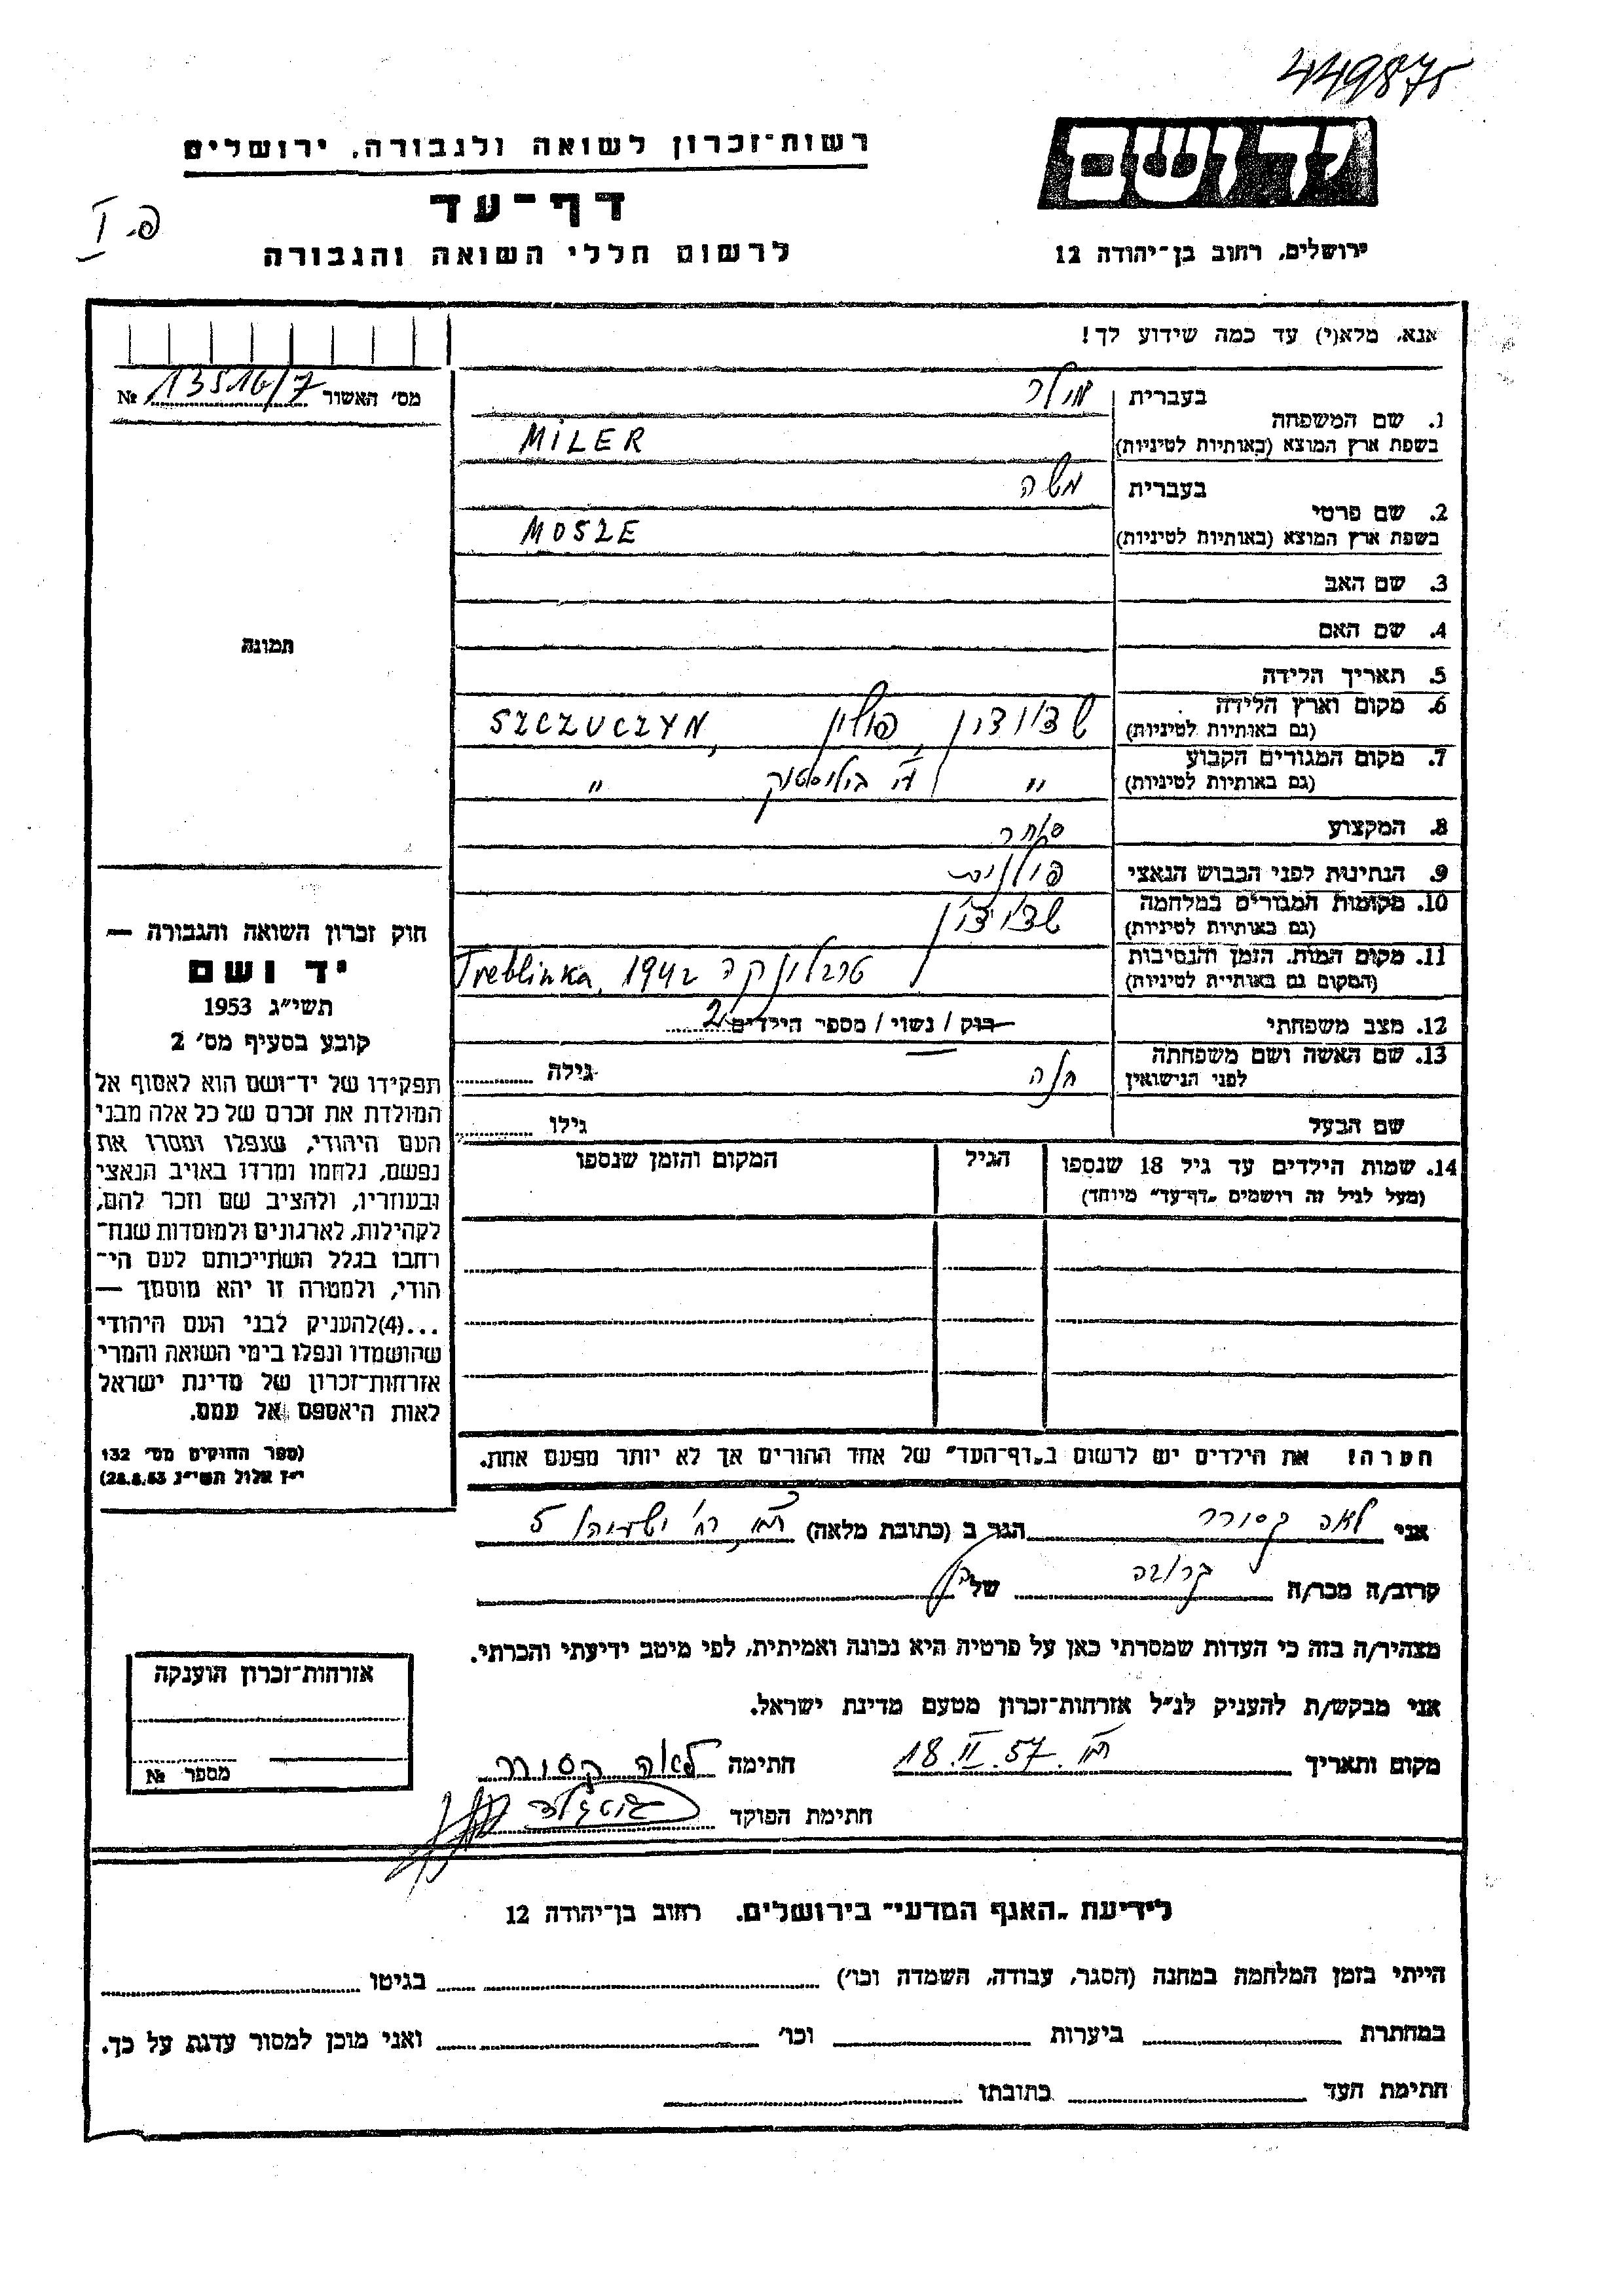 449875
יד ושם
רשות־זכרון לשואה ולגבורה, ירושלים
דף־עד
פ. I
לרשום חללי השואה והגבורה
ירושלים, רחוב בן־יהודה 12
אנא, מלא(י) עד כמה שידוע לך!
מס׳ האשור 13516/7 №
תמונה
1. שם המשפחה
בעברית מילר
בשפת ארץ המוצא (באותיות לטיניות) MILER
2. שם פרטי
בעברית משה
בשפת ארץ המוצא (באותיות לטיניות) MOSZE
3. שם האב
4. שם האם
5. תאריך הלידה
6. מקום וארץ הלידה שצ׳וצ׳ין, פולין, SZCZUCZYN
(גם באותיות לטיניות)
7. מקום המגורים הקבוע " ביאליסטוק "
(גם באותיות לטיניות)
8. המקצוע סוחר
9. הנתינות לפני הכבוש הנאצי פולנית
10. מקומות המגורים במלחמה שצ׳וצ׳ין
(גם באותיות לטיניות)
11. מקום המות, הזמן והנסיבות טרבלינקה 1942 Treblinka,
(המקום גם באותיות לטיניות)
12. מצב משפחתי רווק / נשוי / מספר הילדים 2
13. שם האשה ושם משפחתה חנה גילה
לפני הנישואין
שם הבעל גילו
14. שמות הילדים עד גיל 18 שנספו הגיל המקום והזמן שנספו
(מעל לגיל זה רושמים „דף־עד” מיוחד)
הערה! את הילדים יש לרשום ב„דף־העד” של אחד ההורים אך לא יותר מפעם אחת.
חוק זכרון השואה והגבורה —
יד ושם
תשי״ג 1953
קובע בסעיף מס׳ 2
תפקידו של יד־ושם הוא לאסוף אל
המולדת את זכרם של כל אלה מבני
העם היהודי, שנפלו ומסרו את
נפשם, נלחמו ומרדו באויב הנאצי
ובעוזריו, ולהציב שם וזכר להם,
לקהילות, לארגונים ולמוסדות שנח־
רחבו בגלל השתייכותם לעם הי־
הודי, ולמטרה זו יהא מוסמך —
...(4)להעניק לבני העם היהודי
שהושמדו ונפלו בימי השואה והמרי
אזרחות־זכרון של מדינת ישראל
לאות היאספם אל עמם.
(ספר החוקים מס׳ 132
י״ז אלול תשי״ג 28.8.53)
אני לאה קסורר הגר ב (כתובת מלאה) רח׳ 5
קרוב/ה מכר/ה קרובה של
מצהיר/ה בזה כי העדות שמסרתי כאן על פרטיה היא נכונה ואמיתית, לפי מיטב ידיעתי והכרתי.
אני מבקש/ת להעניק לנ״ל אזרחות־זכרון מטעם מדינת ישראל.
מקום ותאריך 18.II.57 חתימה לאה קסורר
חתימת הפוקד
אזרחות־זכרון הוענקה
מספר №
לידיעת „האגף המדעי” בירושלים, רחוב בן־יהודה 12
הייתי בזמן המלחמה במחנה (הסגר, עבודה, השמדה וכו׳) בגיטו
במחתרת ביערות וכו׳ ואני מוכן למסור עדות על כך.
חתימת העד כתובתו